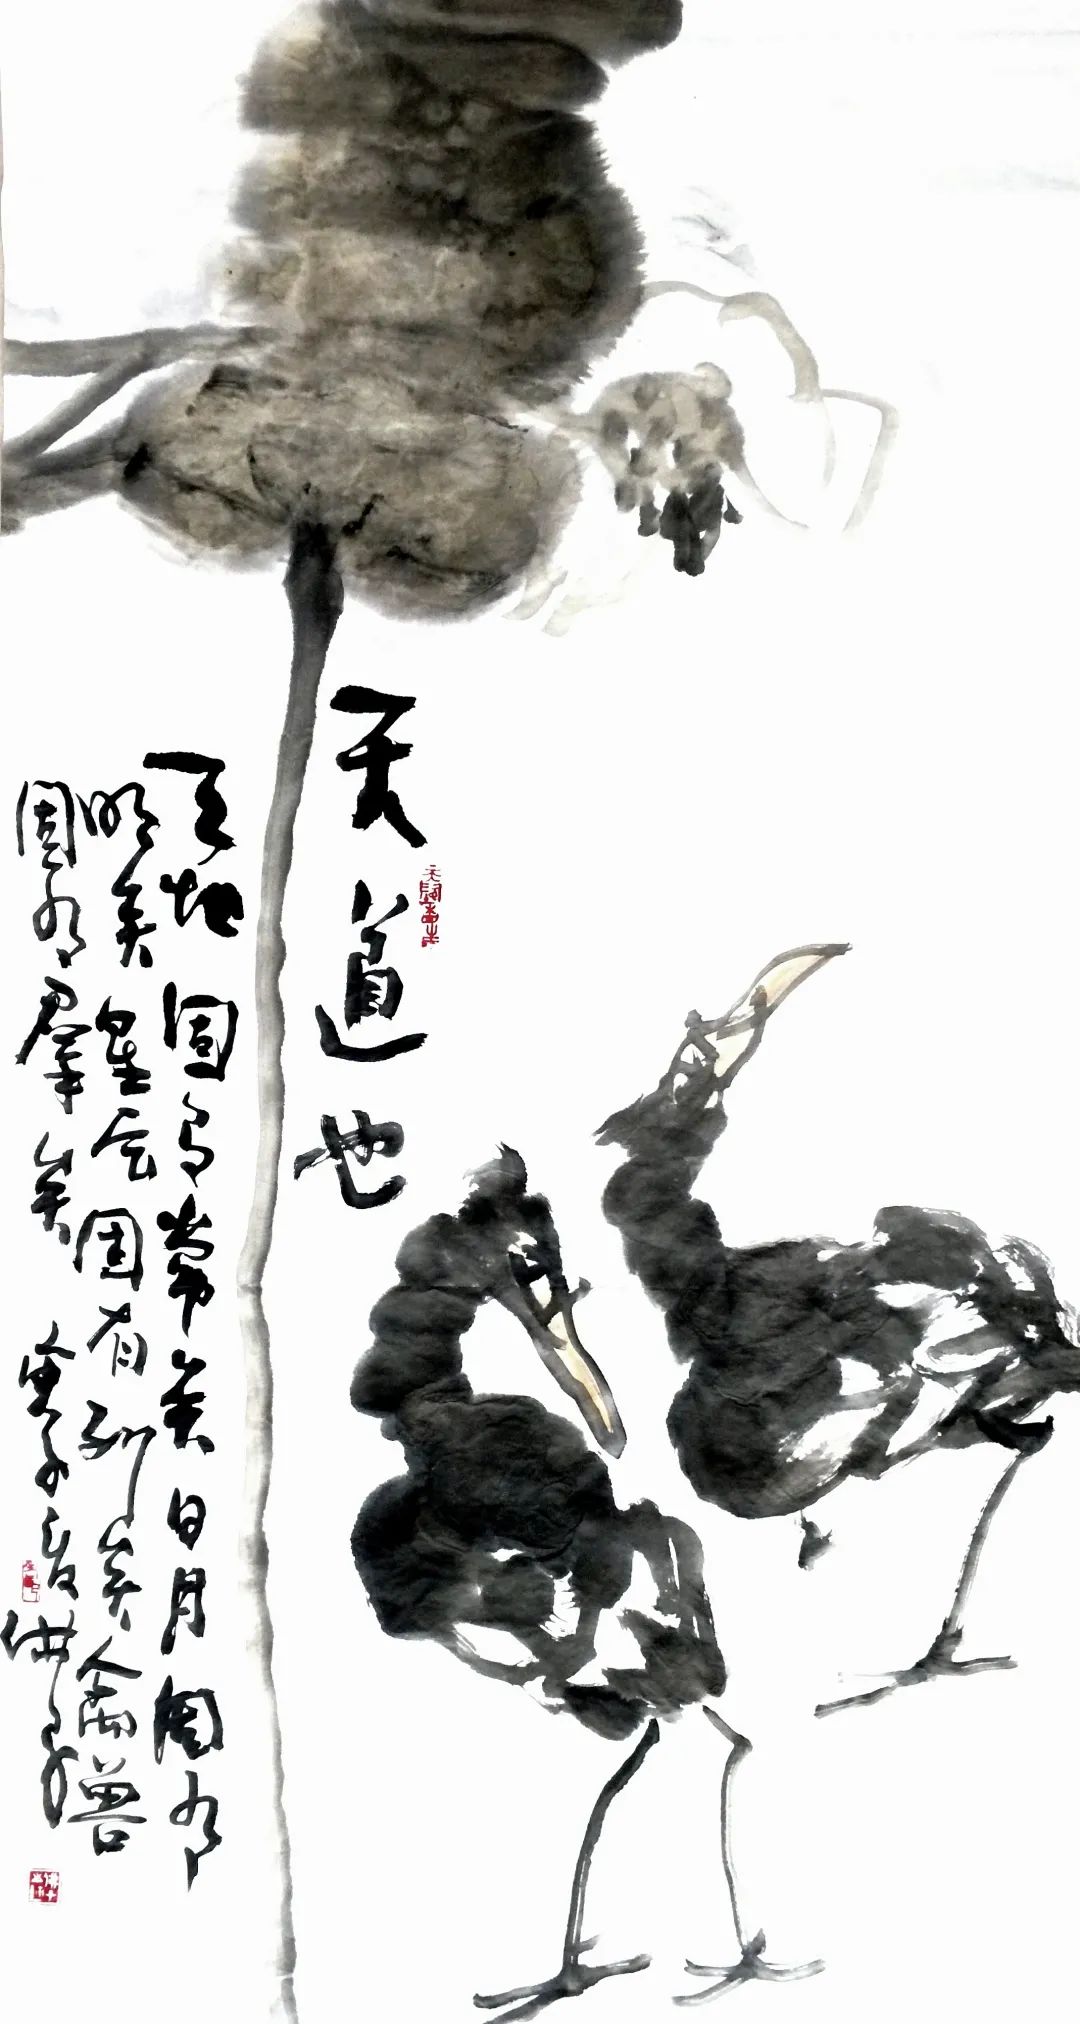 天道也
天地固有常矣日月固有
明矣星辰固有列矣禽兽
固有羣矣